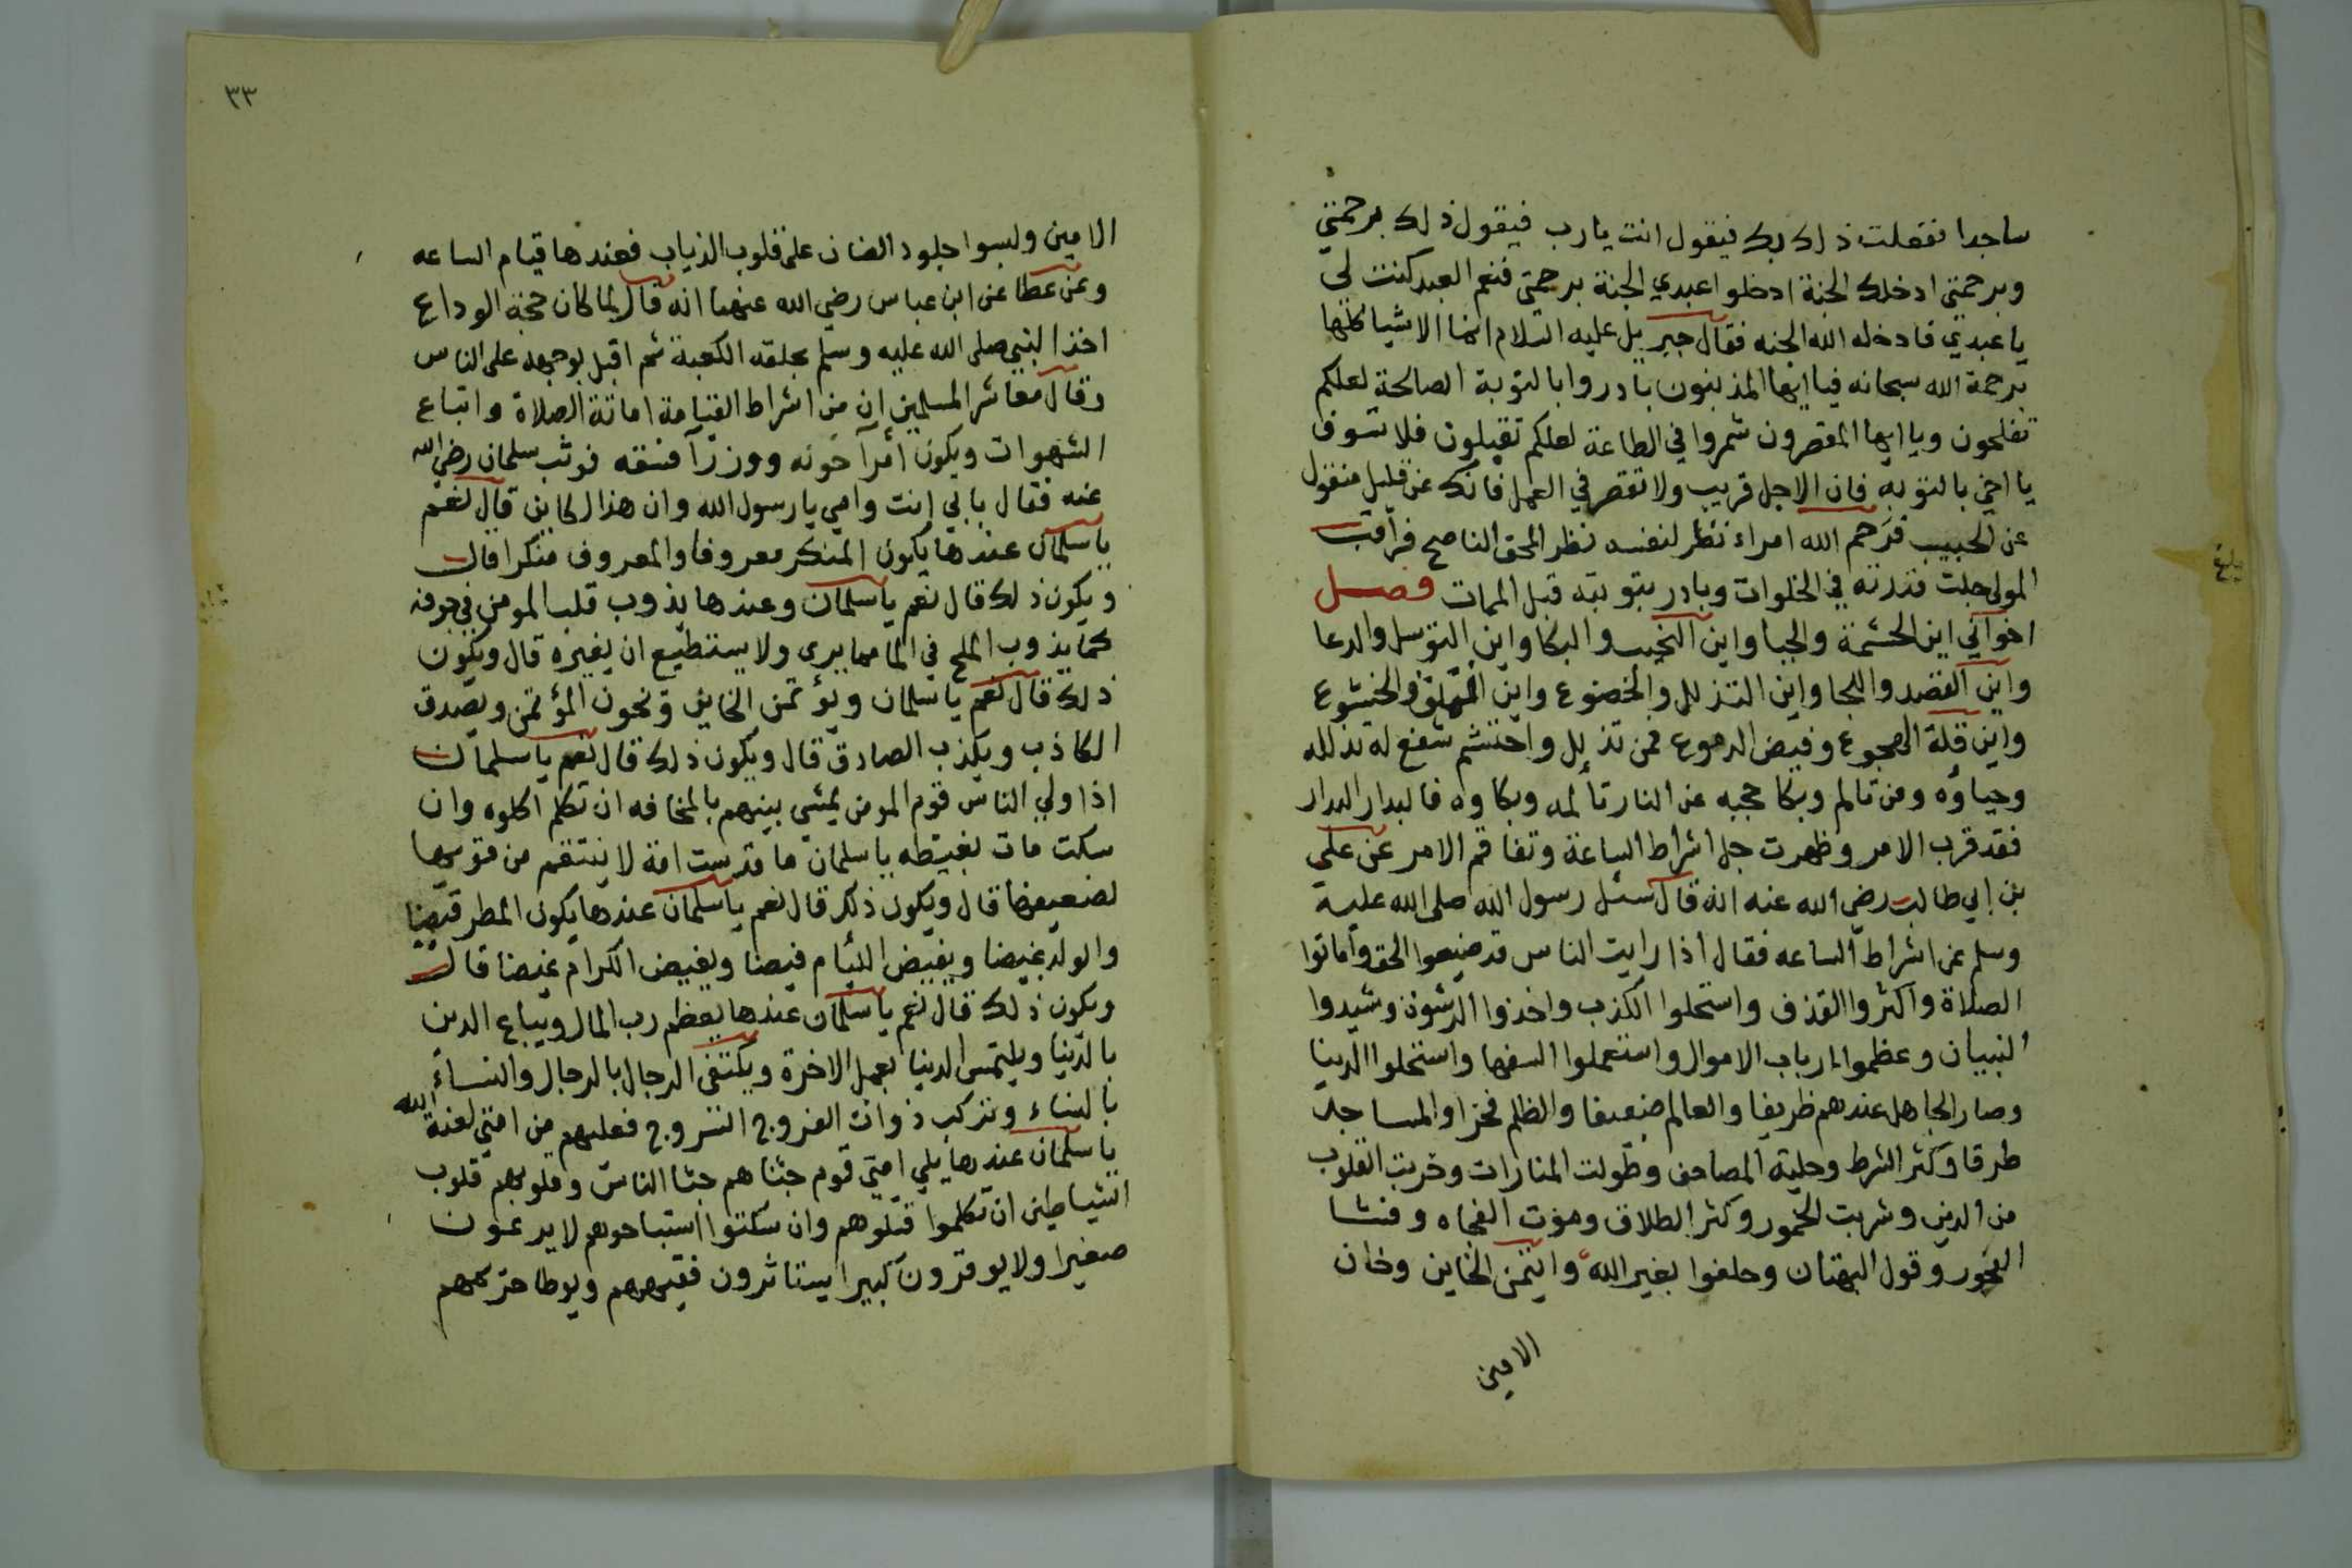 ساجدا ففعلت ذلك بك فيقول انت يارب فيقول ذلك برحمتي
وبرحمتي ادخلك الجنة ادخلوا عبدي الجنة برحمتي فنعم العبد كنت لي
يا عبدي فادخله الله الجنه فقال جبريل عليه السلام انما الاشيا كلها
برحمة الله سبحانه فيا ايها المذنبون بادروا بالتوبة الصالحة لعلكم
تفلحون ويا ايها المقصرون شمروا في الطاعة لعلكم تقبلون فلا تسوف
يا اخي بالتوبه فان الاجل قريب ولا تقصر في العمل فانك عن قليل منقول
عن الحبيب فرحم الله امراء نظر لنفسه نظر المحق الناصح فراقب
المولى جلت قدرته في الخلوات وبادر بتوبته قبل الممات فصل
اخواني اين الحشمة والحيا واين النحيب والبكا واين التوسل والدعا
واين القصد واللجا واين التذلل والخضوع واين التملق والخشوع
واين قلة الهجوع وفيض الدموع فمن تذلل واحتشم شفع له تذلله
وحياؤه ومن تالم وبكا حجبه عن النار تألمه وبكاوه فالبدار البدار
فقد قرب الامر وظهرت جل اشراط الساعة وتفاقم الامر عن علي
بن ابي طالب رضي الله عنه انه قال سئل رسول الله صلى الله عليه
وسلم عن اشراط الساعه فقال اذا رايت الناس قد ضيعوا الحق واماتوا
الصلاة واكثروا القذف واستحلوا الكذب واخذوا الرشوة وشيدوا
البنيان وعظموا ارباب الاموال واستعملوا السفها واستحلوا الدنيا
وصار الجاهل عندهم ظريفا والعالم ضعيفا والظلم فخرا والمساجد
طرقا وكثر الشرط وحلية المصاحف وطولت المنارات وخربت القلوب
من الدين وشربت الخمور وكثر الطلاق وموت الفجاه وفشا
الفجور وقول البهتان وحلفوا بغير الله وايتمن الخاين وخان
الامين
٣٣
الامين ولبسوا جلود الضان على قلوب الذياب فعندها قيام الساعه
وعن عطا عن ابن عباس رضي الله عنهما انه قال لما كان حجة الوداع
اخذ النبي صلى الله عليه وسلم بحلقه الكعبة ثم اقبل بوجهه على الناس
وقال معاشر المسلمين ان من اشراط القيامة اماتة الصلاة واتباع
الشهوات ويكون أمرآ خونه ووزرآ فسقه فوثب سلمان رضي الله
عنه فقال بابي انت وامي يا رسول الله وان هذا لكاين قال نعم
يا سلمان عندها يكون المنكر معروفا والمعروف منكرا قال
ويكون ذلك قال نعم يا سلمان وعندها يذوب قلب المومن في جوفه
كما يذوب الملح في الما مما يرى ولا يستطيع ان يغيره قال ويكون
ذلك قال نعم يا سلمان ويؤتمن الخاين ويخون المؤتمن ويصدق
الكاذب ويكذب الصادق قال ويكون ذلك قال نعم يا سلمان
اذا ولي الناس قوم المومن يمشي بينهم بالمخافه ان تكلم اكلوه وان
سكت مات بغيظه يا سلمان ما قدست امة لا ينتقم من قويها
لضعيفها قال ويكون ذلك قال نعم يا سلمان عندها يكون المطر قيضا
والولد غيضا ويفيض الليام فيضا ويغيض الكرام غيضا قال
ويكون ذلك قال نعم يا سلمان عندها يعظم رب المال ويباع الدين
بالدنيا ويلتمس الدنيا بعمل الاخرة ويكتفى الرجال بالرجال والنساء
بالنساء وتركب ذوات الفروج السروج فعليهم من امتي لعنة الله
يا سلمان عندها يلي امتي قوم جثثاهم جثا الناس وقلوبهم قلوب
الشياطين ان تكلموا قتلوهم وان سكتوا استباحوهم لا يرحمون
صغيرا ولا يوقرون كبيرا يستاثرون فقيرهم ويوطا حرمهم